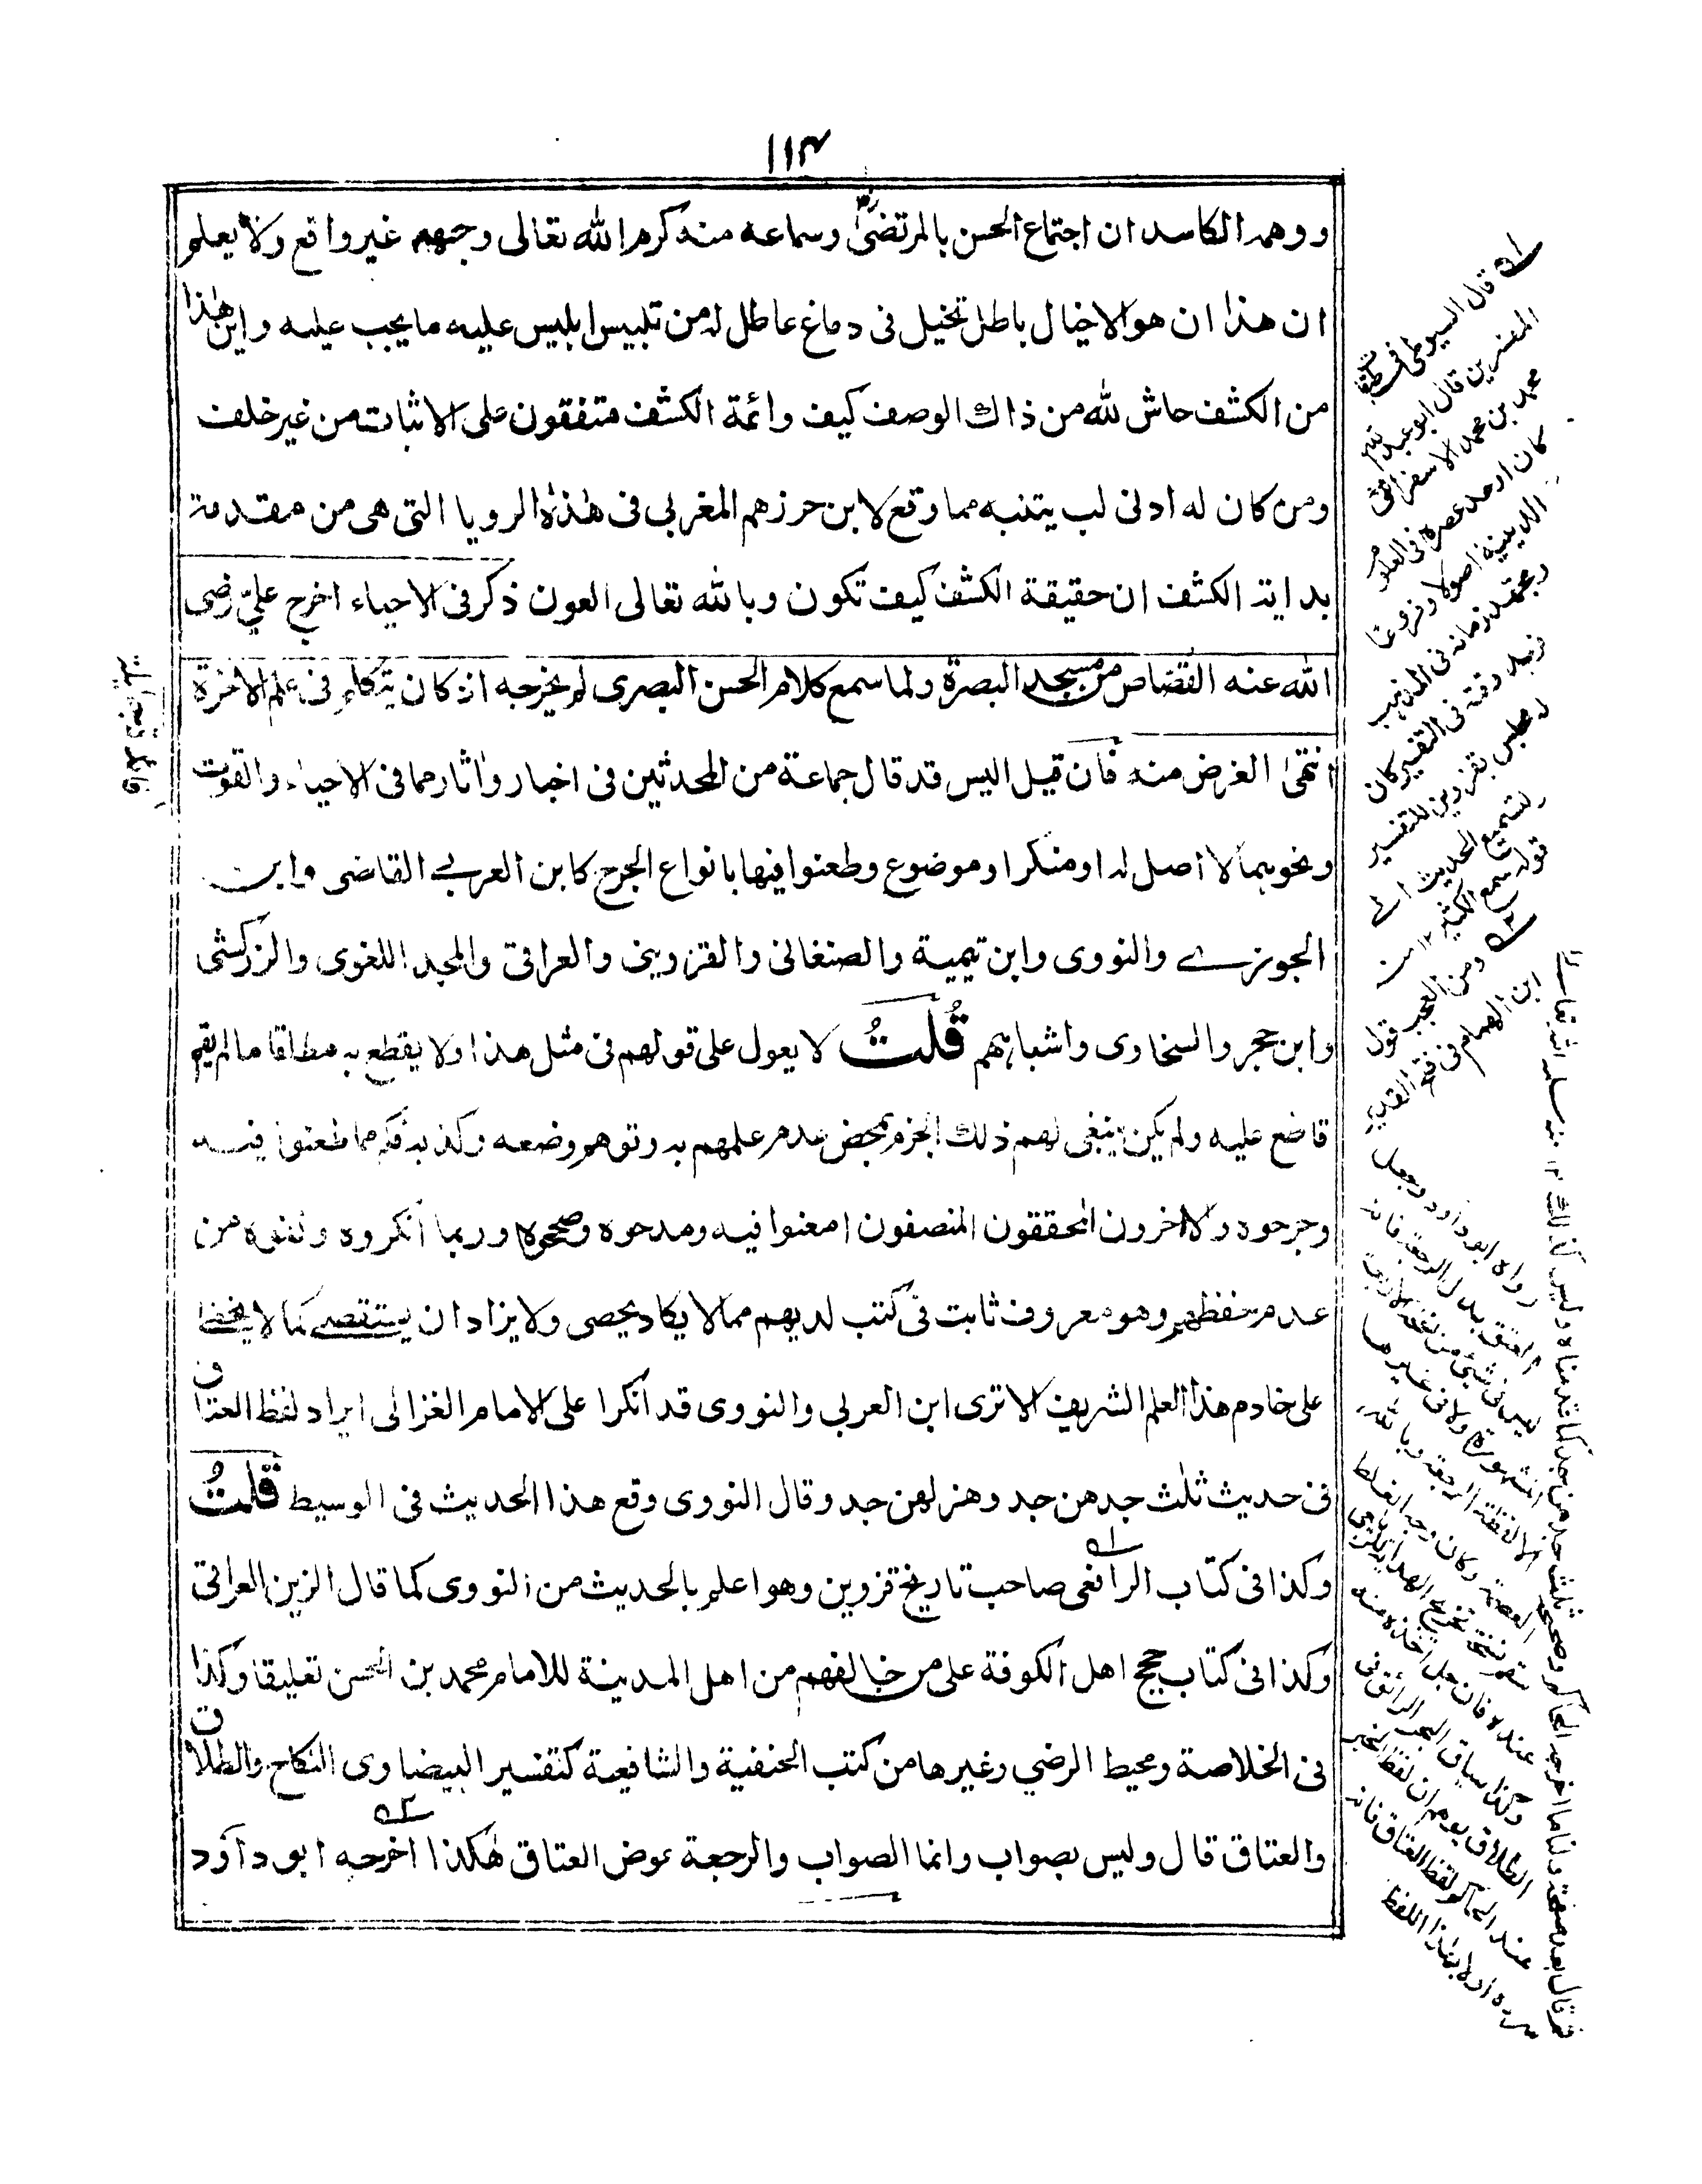 ١١٣
ووهمه الكاسد ان اجتماع الحسن بالمرتضىٰ رض وسماعه منه كرم الله تعالى وجههم غير واقع ولا يعلم
ان هذا ان هو الا خيال باطل تخيل فى دماغ عاطل له من تلبيس ابليس عليه ما يجب عليه واين هٰذا
من الكشف حاش لله من ذاك الوصف كيف وائمة الكشف متفقون على الاثبات من غير خلف
ومن كان له ادنى لب يتنبه مما وقع لابن حرزهم المغربي فى هٰذه الرويا التى هى من مقدمة
بداية الكشف ان حقيقة الكشف كيف تكون وبالله تعالى العون ذكر فى الاحياء اخرج عليّ رضى
الله عنه القصاص من مسجد البصرة ولما سمع كلام الحسن البصرى لم يخرجه اذ كان يتكلم فى علم الاخرة
انتهىٰ الغرض منه فان قيل اليس قد قال جماعة من المحدثين فى اخبار واٰثار مما فى الاحياء والقوت
ونحوهما لا اصل له او منكر او موضوع وطعنوا فيها بانواع الجرح كابن العربي القاضى وابن
الجوزي والنووى وابن تيمية والصنغانى والقزوينى والعراقى والمجد اللغوى والزركشى
وابن حجر والسخاوى واشباههم قُلتُ لا يعول على قولهم فى مثل هذا ولا يقطع به مطلقا ما لم يقم
قاضع عليه ولم يكن ينبغى لهم ذلك الجزم بمحض عدم علمهم به وتوهم وضعه وكذبه فكم مما طعنوا فيه
وجرحوه والاخرون المحققون المنصفون امعنوا فيه ومدحوه وصححوه وربما انكروه ونفوه من
عدم حفظهم وهو معروف ثابت فى كتب لديهم مما لا يكاد يحصى ولا يزاد ان يستقصے كما لا يخفےٰ
على خادم هذا العلم الشريف الا ترى ابن العربي والنووى قد انكرا على الامام الغزالى ايراد لفظ العتاق
فى حديث ثلٰث جدهن جد وهزلهن جد وقال النووى وقع هذا الحديث فى الوسيط قُلتُ
وكذا فى كتاب الرافعى صاحب تاريخ قزوين وهو اعلم بالحديث من النووى كما قال الزين العراقى
وكذا فى كتاب حجج اهل الكوفة على من خالفهم من اهل المدينة للامام محمد بن الحسن تعليقا وكذا
فى الخلاصة ومحيط الرضي وغيرها من كتب الحنفية والشافعية كتفسير البيضاوى النكاح والطلاق
والعتاق قال وليس بصواب وانما الصواب والرجعة عوض العتاق هٰكذا اخرجه ابو داؤد
له قال السيوطى فى طبقات
المفسرين قال ابو عبد الله
محمد بن محمد الاسفرائنى
كان اوحد عصره فى العلوم
الدينية اصولا وفروعا
ومجتهد زمانه فى المذهب
فريد وقته فى التفسير كان
له مجلس بقزوين للتفسير
وتسميع الحديث الے
قوله سمع الكثير ١٢ منه
ومن العجب قول
ابن الهمام فى فتح القدير
رواه ابو داود وجعل
العتق بدل الرجعة فانه
ليس فى شئ من نسخه
المشهورة ولا فى غيرها
الا لفظة الرجعة وبالله
العصمة وكان وجه الغلط
عنده فان جل اخذه منه
وكذا سياق البحر الرائق فى
الطلاق يوهم ان لفظ الخبر
عند الحاكم لفظ العتاق فانه
سرده اولا بهٰذا اللفظ
ثم قال بعد صفحة ولنا ما اخرجه الحاكم وصححه ثلٰث جدهن جد كما قدمناه وليس كذلك ١٢ منه سلمه الله تعالے